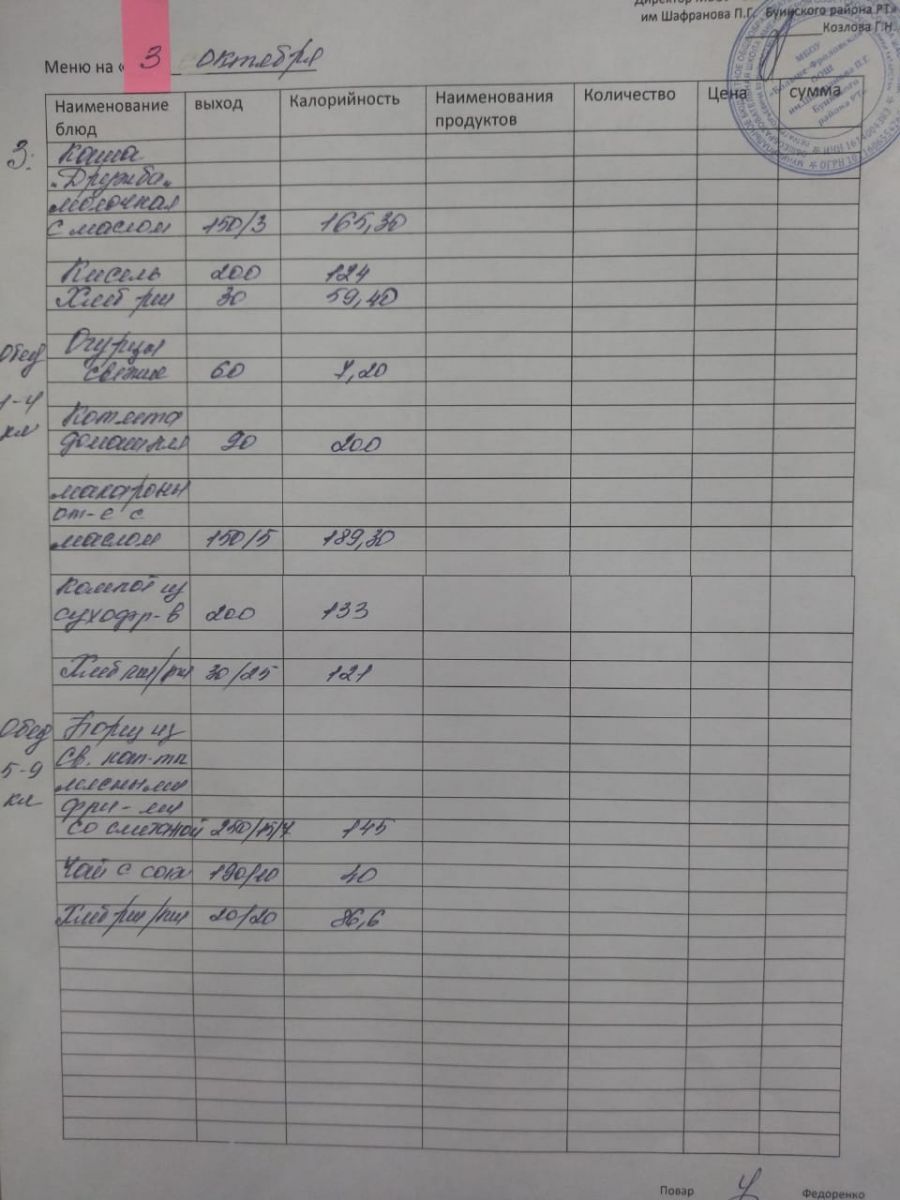 Директор МБОУ
им Шафранова П.Г. Буинского района РТ»
Козлова Г.Н.
МБОУ
ООШ
им. Шафранова П.Г.
Буинского
района РТ»
Меню на « 3 октября
Наименование блюд выход Калорийность Наименования продуктов Количество Цена сумма
З. Каша
„Дружба„
молочная
с маслом 150/3 165,30
Кисель 200 124
Хлеб рж 30 59,40
Обед Огурцы
свежие 60 7,20
1-4 кл Котлета
домашняя 90 200
макароны
от-е с
маслом 150/5 189,30
Компот из
сухофр-в 200 133
Хлеб пш/рж 30/25 121
Обед Борщ из
5-9 кл св. кап-ты
мясными
фри-ми
со сметаной 250/15/7 145
Чай с сах 190/10 40
Хлеб рж/пш 20/20 86,6
Повар Федоренко